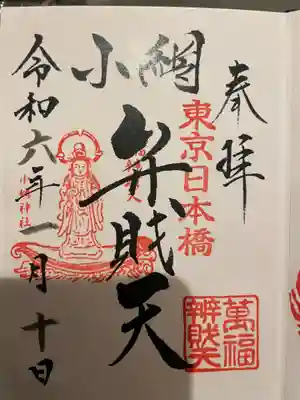 奉拝
東京日本橋
小網
弁財天
萬福
辨財天
小網神社
令和六年一月十日